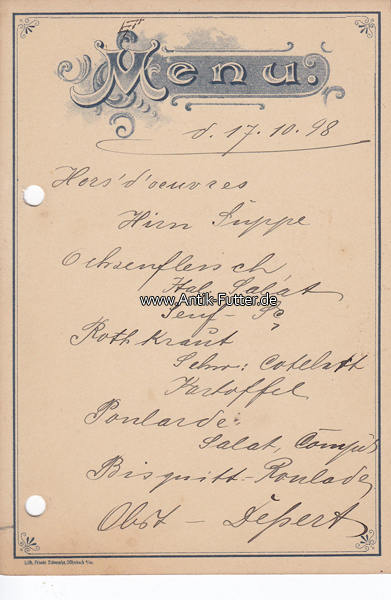 Menu.
d. 17. 10. 98
Hors'd'oeuvres
Hirn Suppe
Ochsenfleisch
Ital. Salat
www.Antik-Futter.de
Senf-
Rothkraut
Schw: Cotelett
Kartoffel
Poularde
Salat, Compot
Bisquitt-Roulade
Obst - Desert